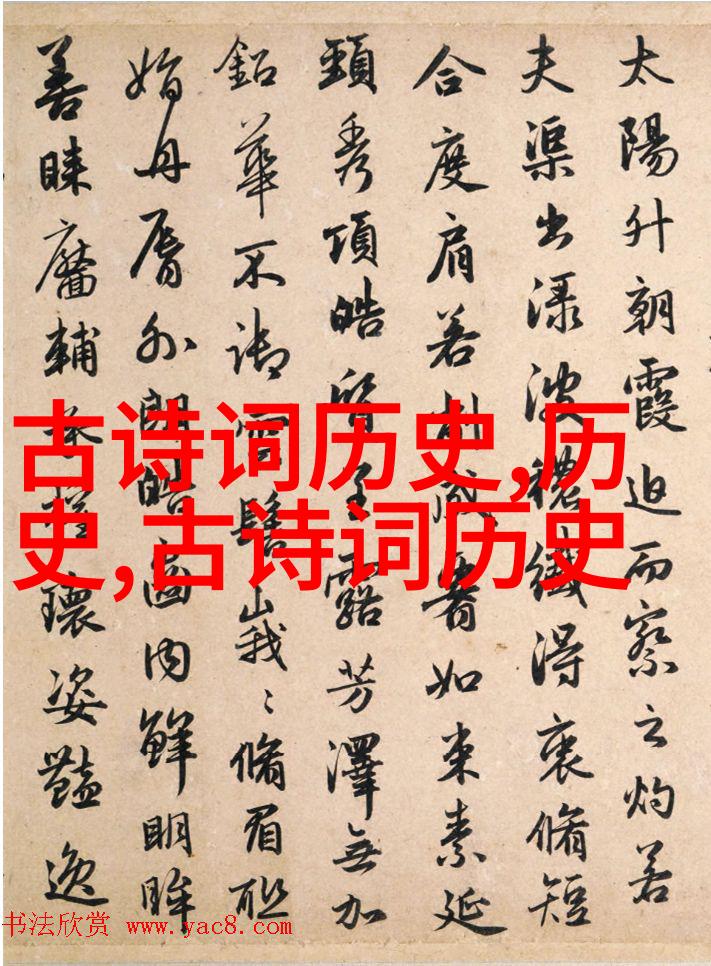 太陽升朝霞迫而察之灼若
夫渠出淥波穠纖得衷脩短
合度肩若削成如束素延
頸秀項皓質呈露芳澤無加
鉛華不御雲髻峩〻脩眉聯
娟丹脣外朗皓齒内鮮明眸
善睞靨輔承權環姿豔逸
古诗词历史,历
史,古诗词历史
书法欣赏 www.yac8.com